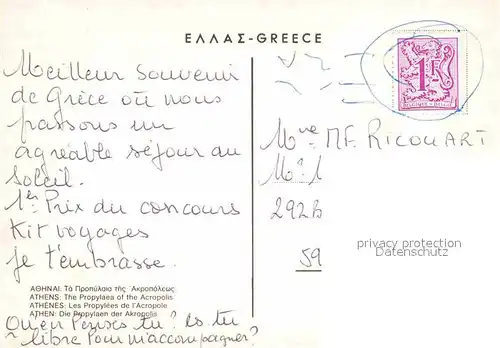 ΕΛΛΑΣ-GREECE
Meilleur souvenir
de Grèce où nous
passons un
agréable séjour au
soleil.
1er Prix du concours
Kit voyages
je t'embrasse.
ΑΘΗΝΑΙ: Τὰ Προπύλαια τῆς Ἀκροπόλεως
ATHENS: The Propylaea of the Acropolis
ATHÈNES: Les Propylées de l'Acropole
ATHEN: Die Propylaen der Akropolis
Qu'en Penses tu? es tu
libre Pour m'accompagner?
1F
BELGIQUE-BELGIE
MF. RICOUART
292B
59
privacy protection
Datenschutz